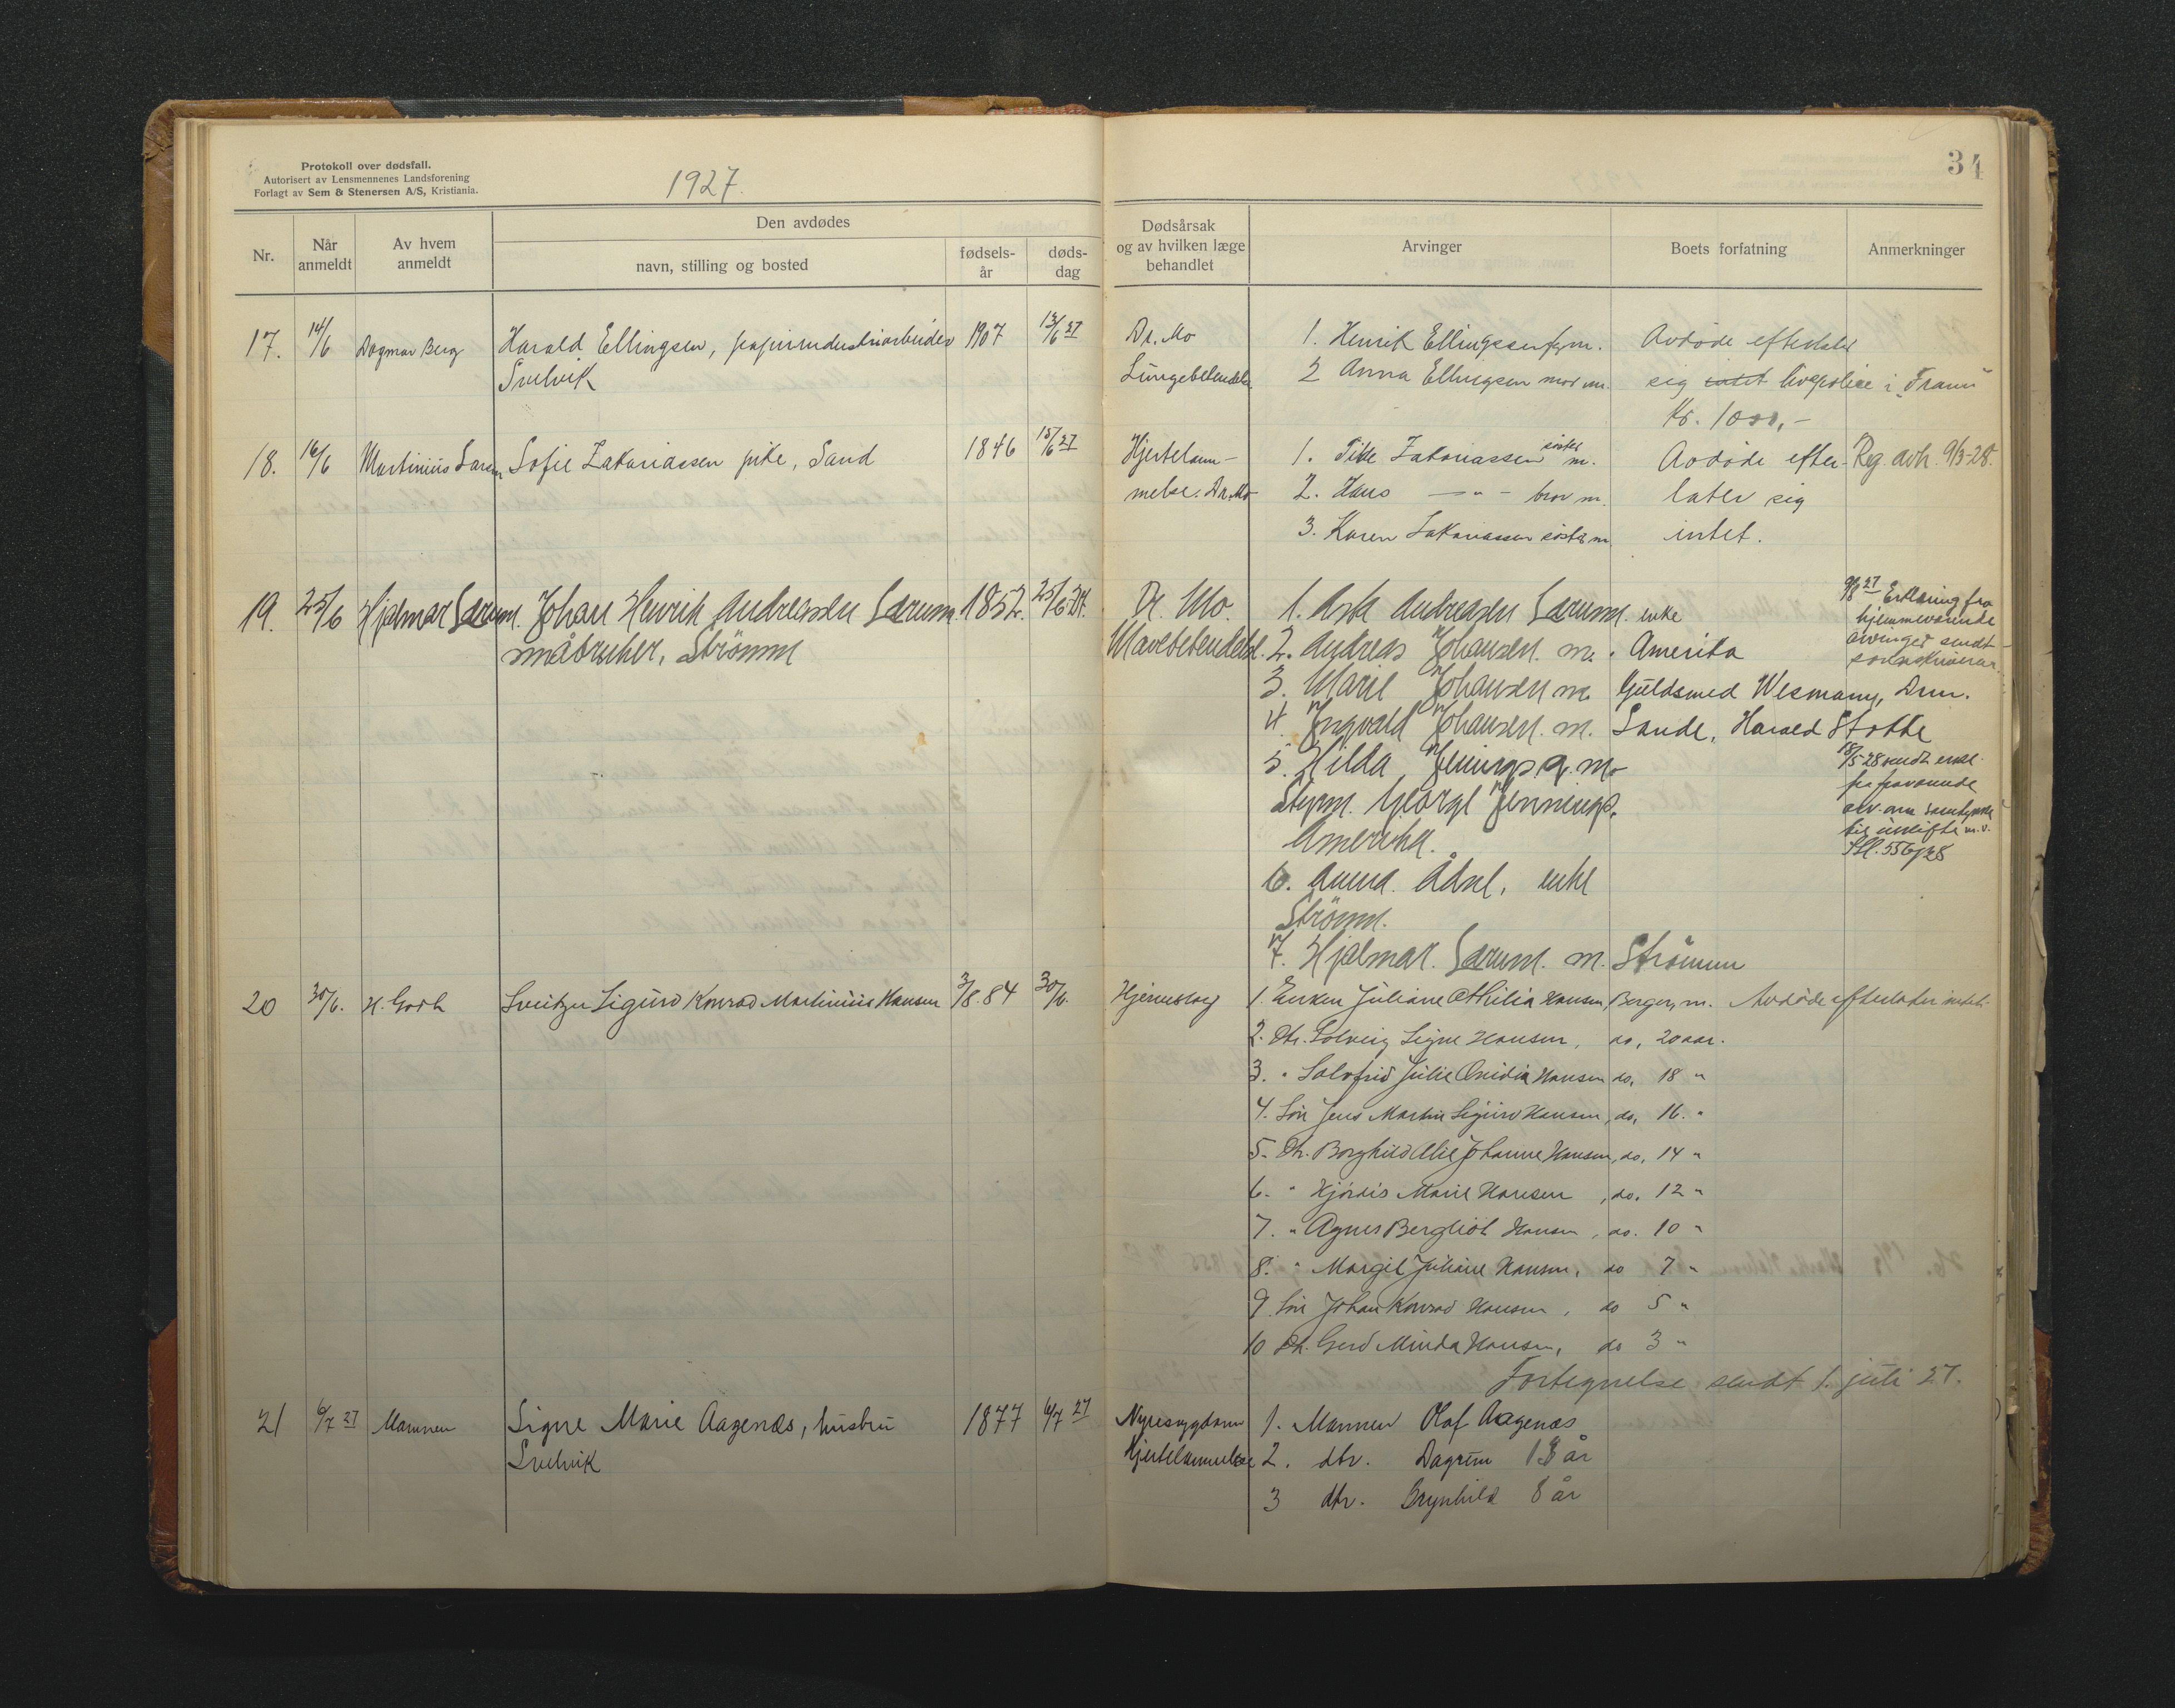 Protokoll over dødsfall.
Autorisert av Lensmennenes Landsforening
Forlagt av Sem & Stenersen A/S, Kristiania.
1927.
34
Nr.
Når anmeldt
Av hvem anmeldt
Den avdødes
navn, stilling og bosted
fødsels-år
døds-dag
Dødsårsak og av hvilken læge behandlet
Arvinger
Boets forfatning
Anmerkninger
17. 14/6 Dagmar Berg Harald Ellingsen, papirindustriarbeider 1907 13/6 27 Dr. Mo 1. Henrik Ellingsen far m. Avdøde efterlater
Svelvik 2 Anna Ellingsen mor m. sig intet livspolice i "Fram"
Kr. 1000,-
18. 16/6 Martinius Larsen Sofie Zakariassen pike, Sand 1846 15/6 27 Hjertelam- 1. Zakariassen søster m. Avdøde efter- Reg. avh. 9/3-28.
melse. Dr. Mo 2. Hans —"— bror m. later sig
3. Karen Zakariassen søster m. intet.
19. 25/6 Hjalmar Sørum. Johan Henrik Andreassen Sørum. 1852. 25/6-27. Dr. Mo. 1. Andreassen Sørum. enke 9/8 27 Erklæring fra
småbruker, Strömm 2. Andreas Johansen. m. Amerika hjemmeværende
arvinger sendt
sorenskriveren
3. Marie Johansen m. Guldsmed Wesmann, Drm.
4. Ingvald Johansen. m. Sande, Harald Stokke
5. Hilda Jennings g. m. 18/5-28 sendt erkl.
Styrm. George Jennings. fra fraværende
Amerika. arv. om samtykke
til uskifte m.v.
6. Anna Ådnl, enke 556/28
Strömm.
7. Hjalmar. Sørum. m. Strömmen
20 30/6. H. Goth Sveitzer Sigurd Konrad Martinius Hansen 3/8.84 30/6. Hjerneslag 1. Enken Juliane Othilia Hansen, Berger, m. Avdøde efterlater intet.
2. Dtr. Solveig Signe Hansen, do, 20 aar.
3. " Solvfrid Julie Ovidia Hansen do, 18 "
4. Sön Jens Martin Sigurd Hansen, do, 16. "
5. Dtr. Borghild Johanne Hansen, do, 14 "
6. " Hjördis Marie Hansen, do. 12 "
7. " Agnes Bergliot Hansen, do. 10 "
8. " Margit Juliane Hansen, do 7 "
9. Sön Johan Konrad Hansen, do 5 "
10 Dtr. Gerd Minda Hansen, do 3 "
Fortegnelse sendt 1. juli 27.
21 6/7 27 Mannen Signe Marie Aagenæs, hustru 1877 4/7 27 Nyresygdom 1. Mannen Olaf Aagenæs
Svelvik Hjertelammelse 2. dtr. Dagrun 13 år
3 dtr. Brynhild 8 år